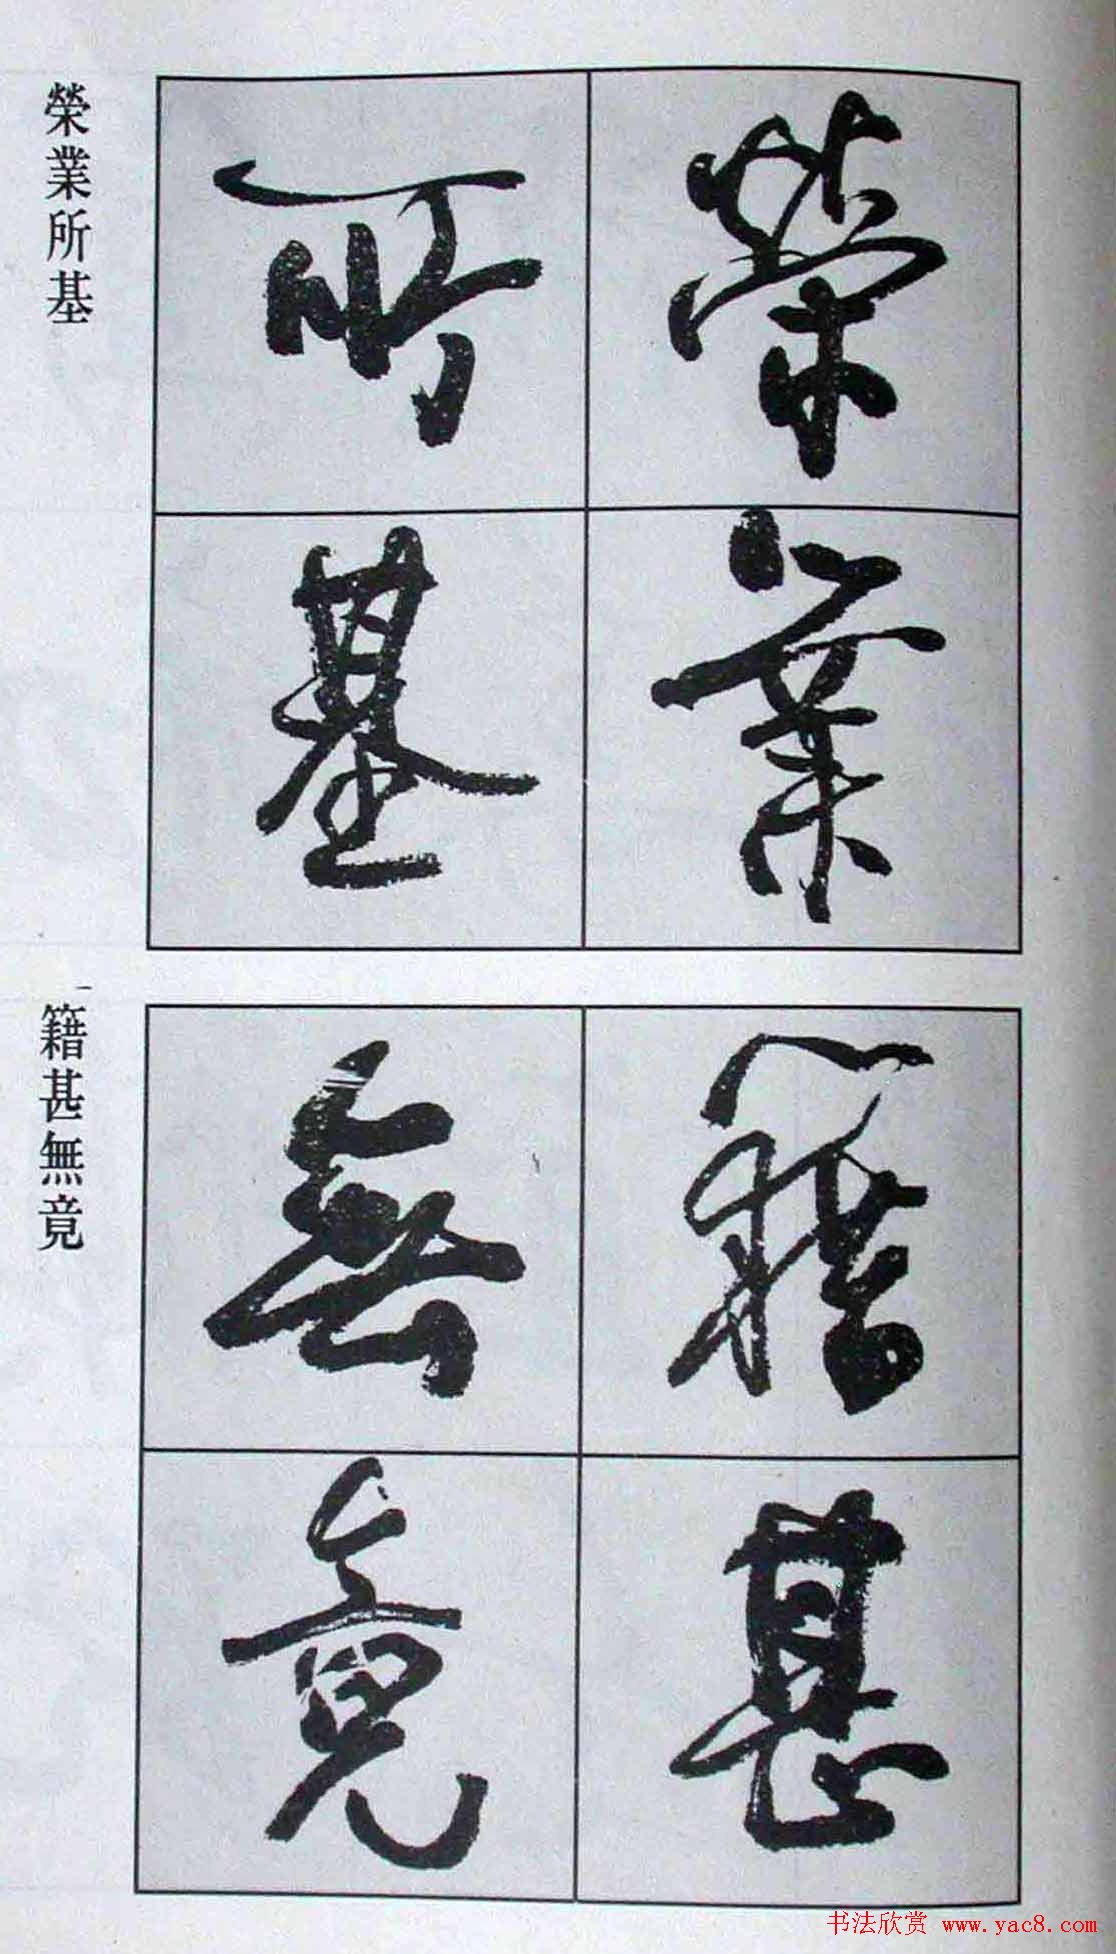 榮業所基
榮業
所基
籍甚無竟
籍甚
無竟
书法欣赏 www.yac8.com